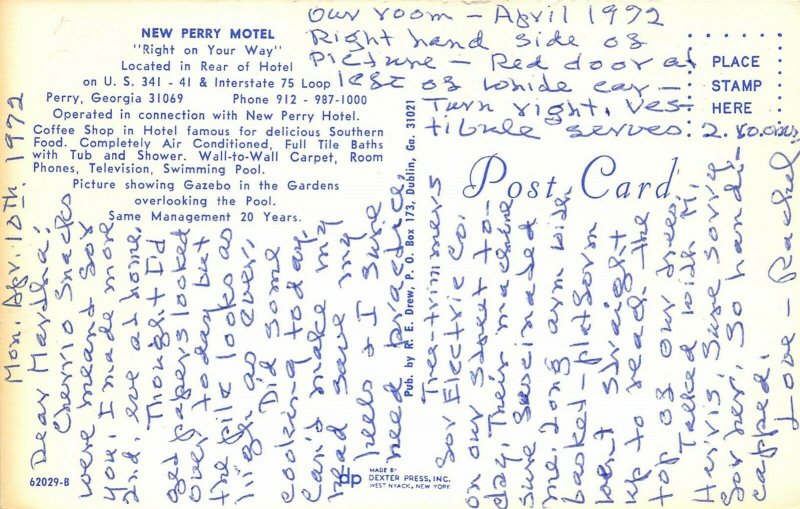 NEW PERRY MOTEL
"Right on Your Way"
Located in Rear of Hotel
on U. S. 341 - 41 & Interstate 75 Loop
Perry, Georgia 31069 Phone 912 - 987-1000
Operated in connection with New Perry Hotel.
Coffee Shop in Hotel famous for delicious Southern
Food. Completely Air Conditioned, Full Tile Baths
with Tub and Shower. Wall-to-Wall Carpet, Room
Phones, Television, Swimming Pool.
Picture showing Gazebo in the Gardens
overlooking the Pool.
Same Management 20 Years.
Our room - April 1972
Right hand side of
Picture - Red door at
left of white car -
Turn right. Ves-
tibule serves 2 rooms,
PLACE
STAMP
HERE
Post Card
Pub. by R. E. Drew, P. O. Box 173, Dublin, Ga. 31021
Mon. Apr. 10th. 1972
Dear Martha:
Cherrio Snacks
were meant for
you. I made more
2nd. eve at home.
Thought I'd
get papers looked
over today but
the pile looks as
high as ever.
Did some
cooking today.
Can't make my
head save my
heels & I sure
need practice.
Tree-trimmers
for Electric Co.
on our street to-
day. Their machine
sure fascinated
me. Long arm with
basket-platform
went straight
up to reach the
top of our trees.
Talked with M.
Sure sorry
for her. So handi-
capped.
Love - Rachel
62029-B
dp
MADE BY
DEXTER PRESS, INC.
WEST NYACK, NEW YORK